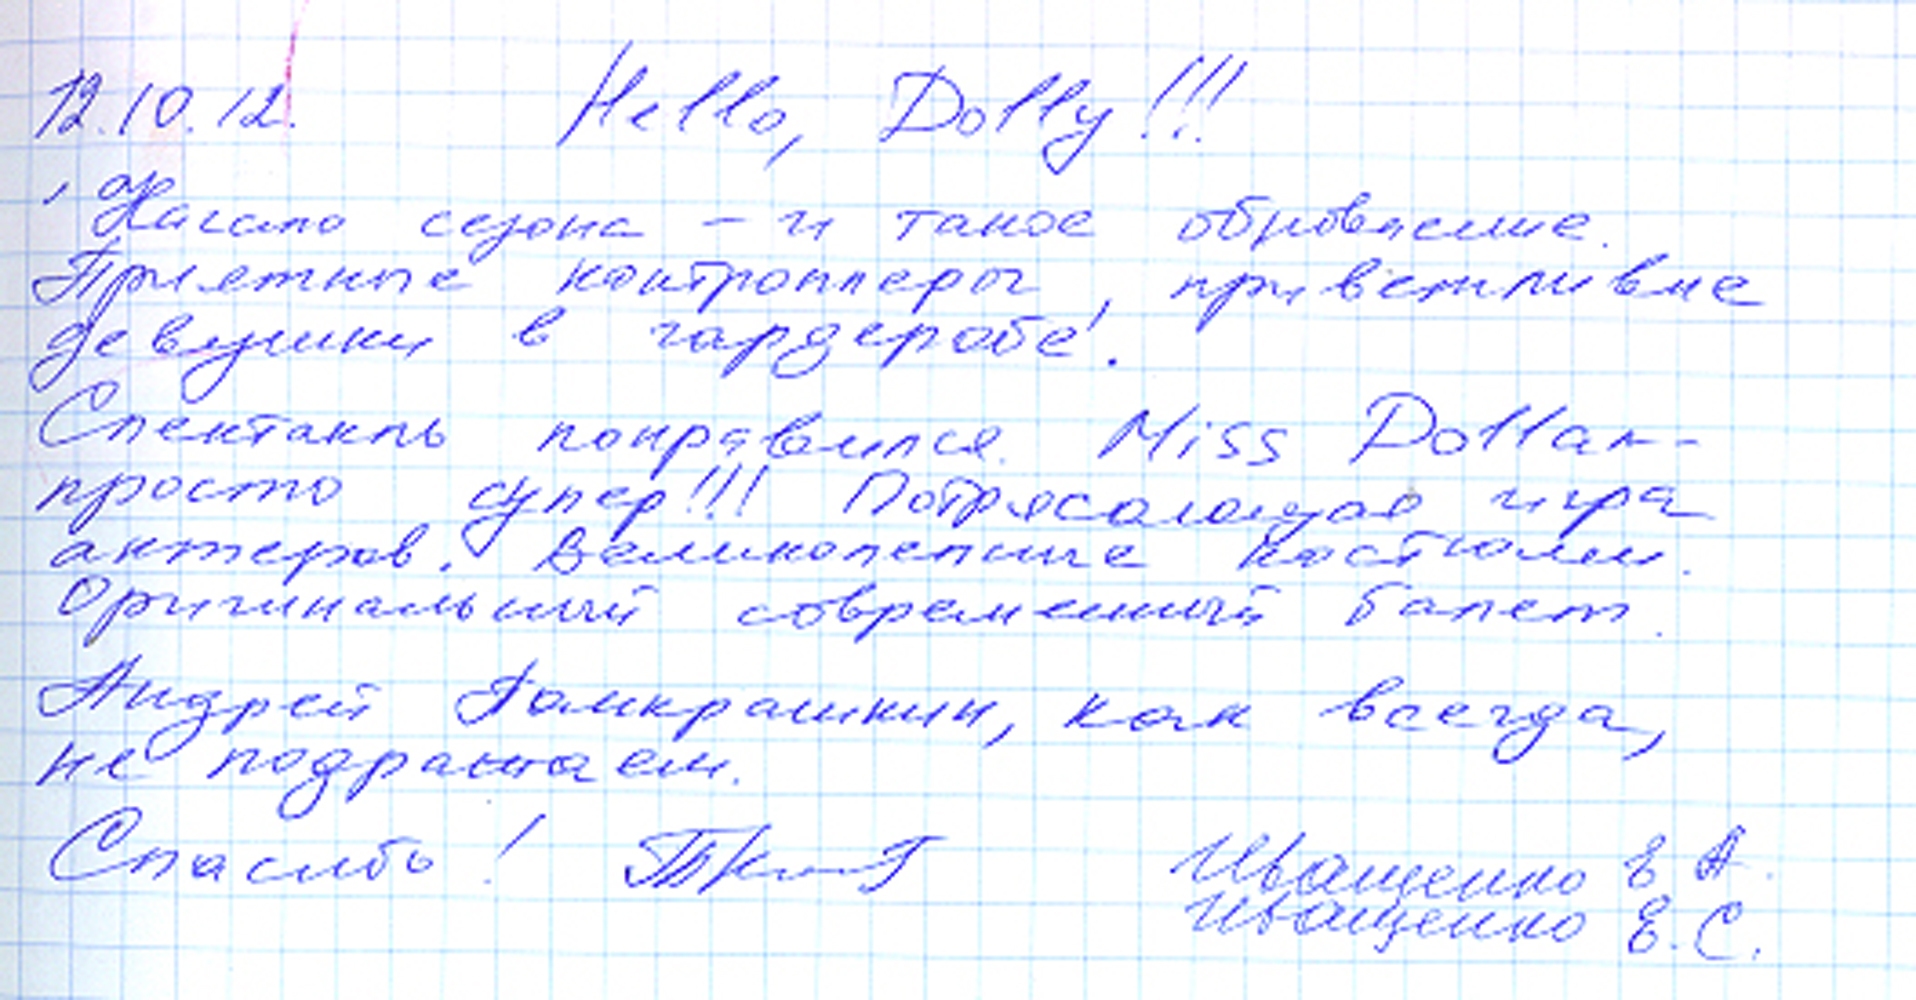 12.10.12. Hello, Dolly!!!
Начало сезона – и такое обновление.
Приятные контролеры, приветливые
девушки в гардеробе!
Спектакль понравился. Miss Dollar -
просто супер!!! Потрясающая игра
актеров. Великолепные костюмы.
Оригинальный современный балет.
Андрей Гамкрашкин, как всегда,
не подражаем.
Спасибо!
Иващенко Е. А.
Иващенко Е. С.